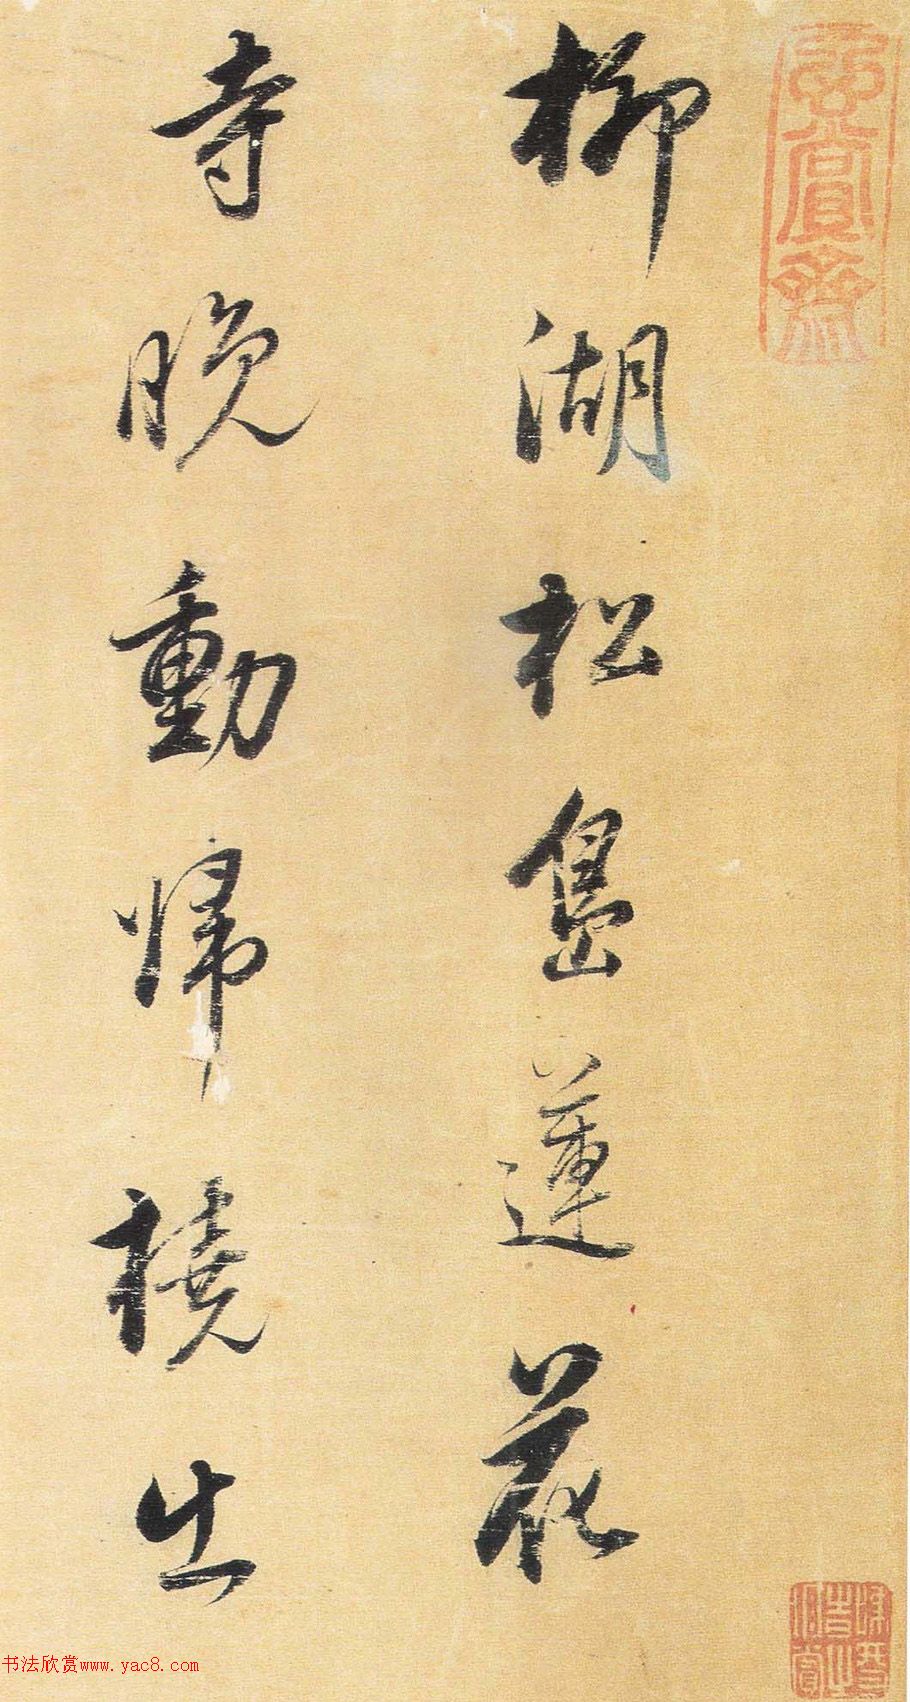 柳湖松島蓮花
寺晚動歸橈出
玄賞齋
书法欣赏www.yac8.com